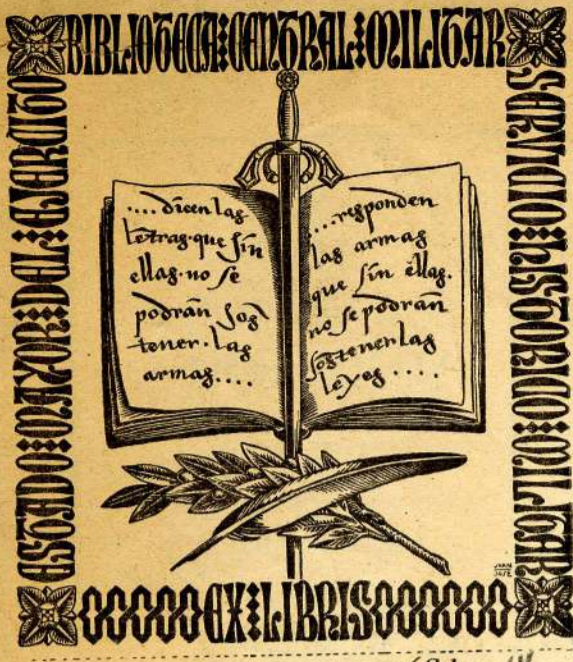 BIBLIOTECA CENTRAL MILITAR
SERVICIO HISTORICO MILITAR
ESTADO MAYOR DEL EJERCITO
.... dicen las
letras que sin
ellas no se
podrán sos
tener las
armas....
....responden
las armas
que sin ellas
no se podrán
sostener las
leyes ....
EX LIBRIS